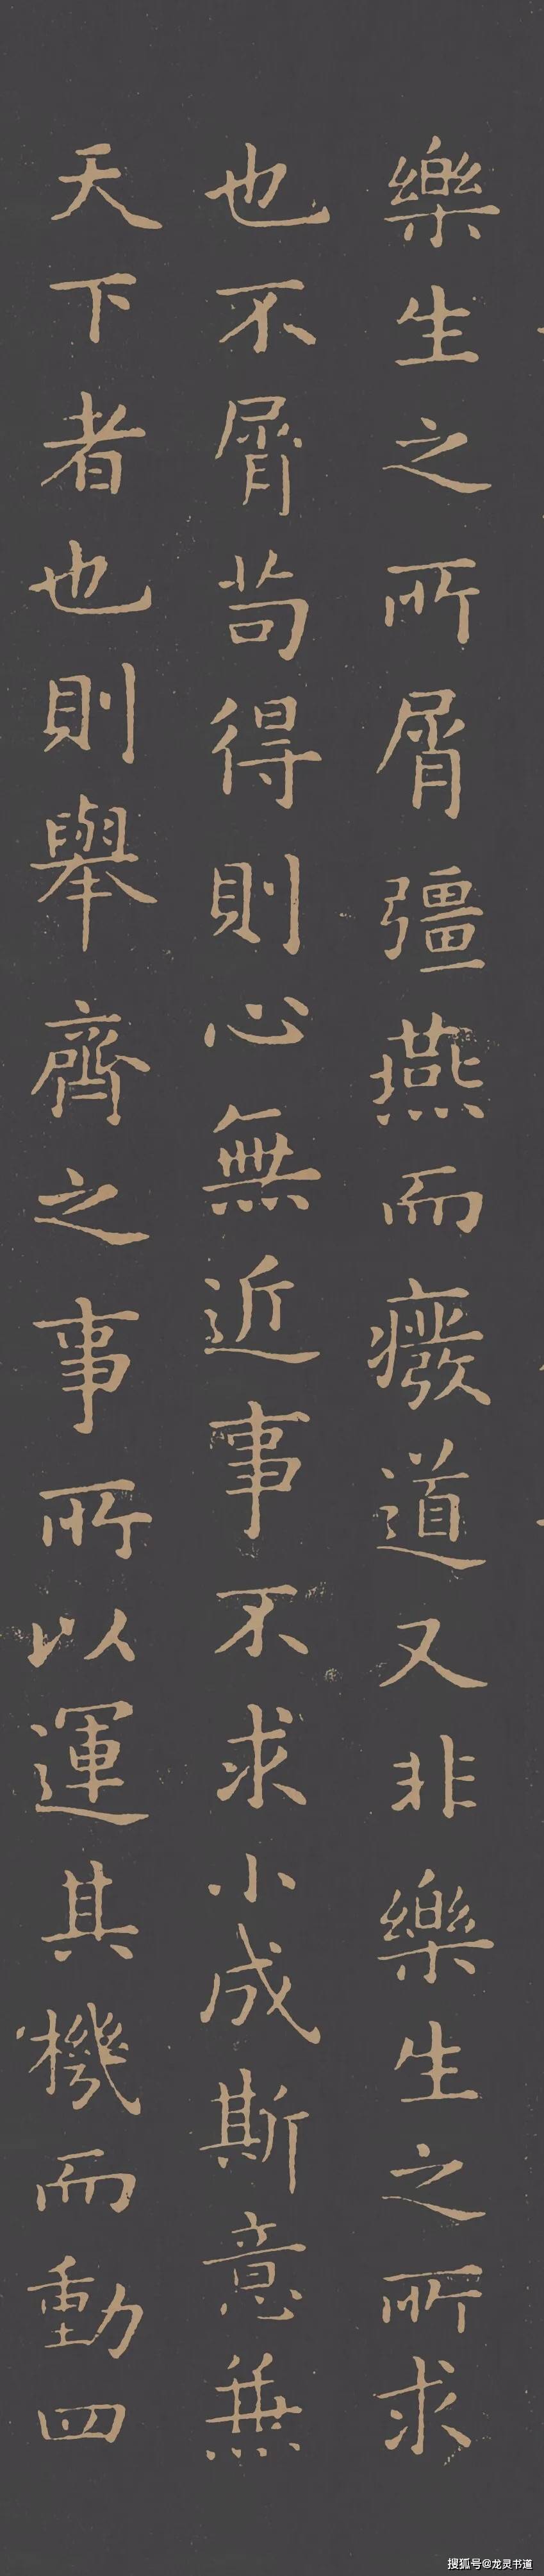 樂生之所屑彊燕而癈道又非樂生之所求
也不屑苟得則心無近事不求小成斯意兼
天下者也則舉齊之事所以運其機而動四
搜狐号@龙灵书道